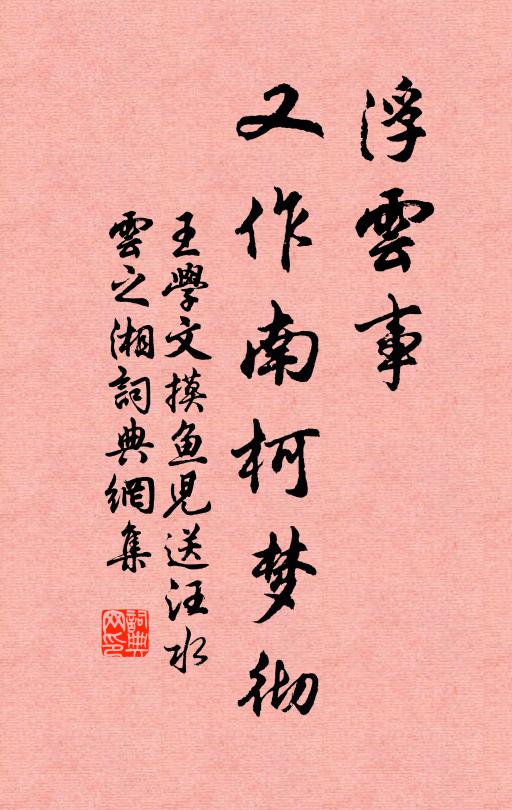 浮雲事
又作南柯梦彻
王學文摸鱼児送汪水
雲之湘詞典網集
詞典网印